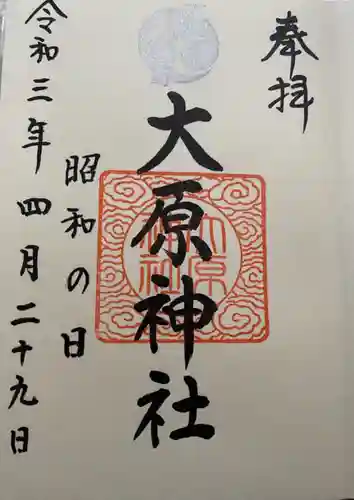 奉拝
大原神社
昭和の日
令和三年四月二十九日
大原神社